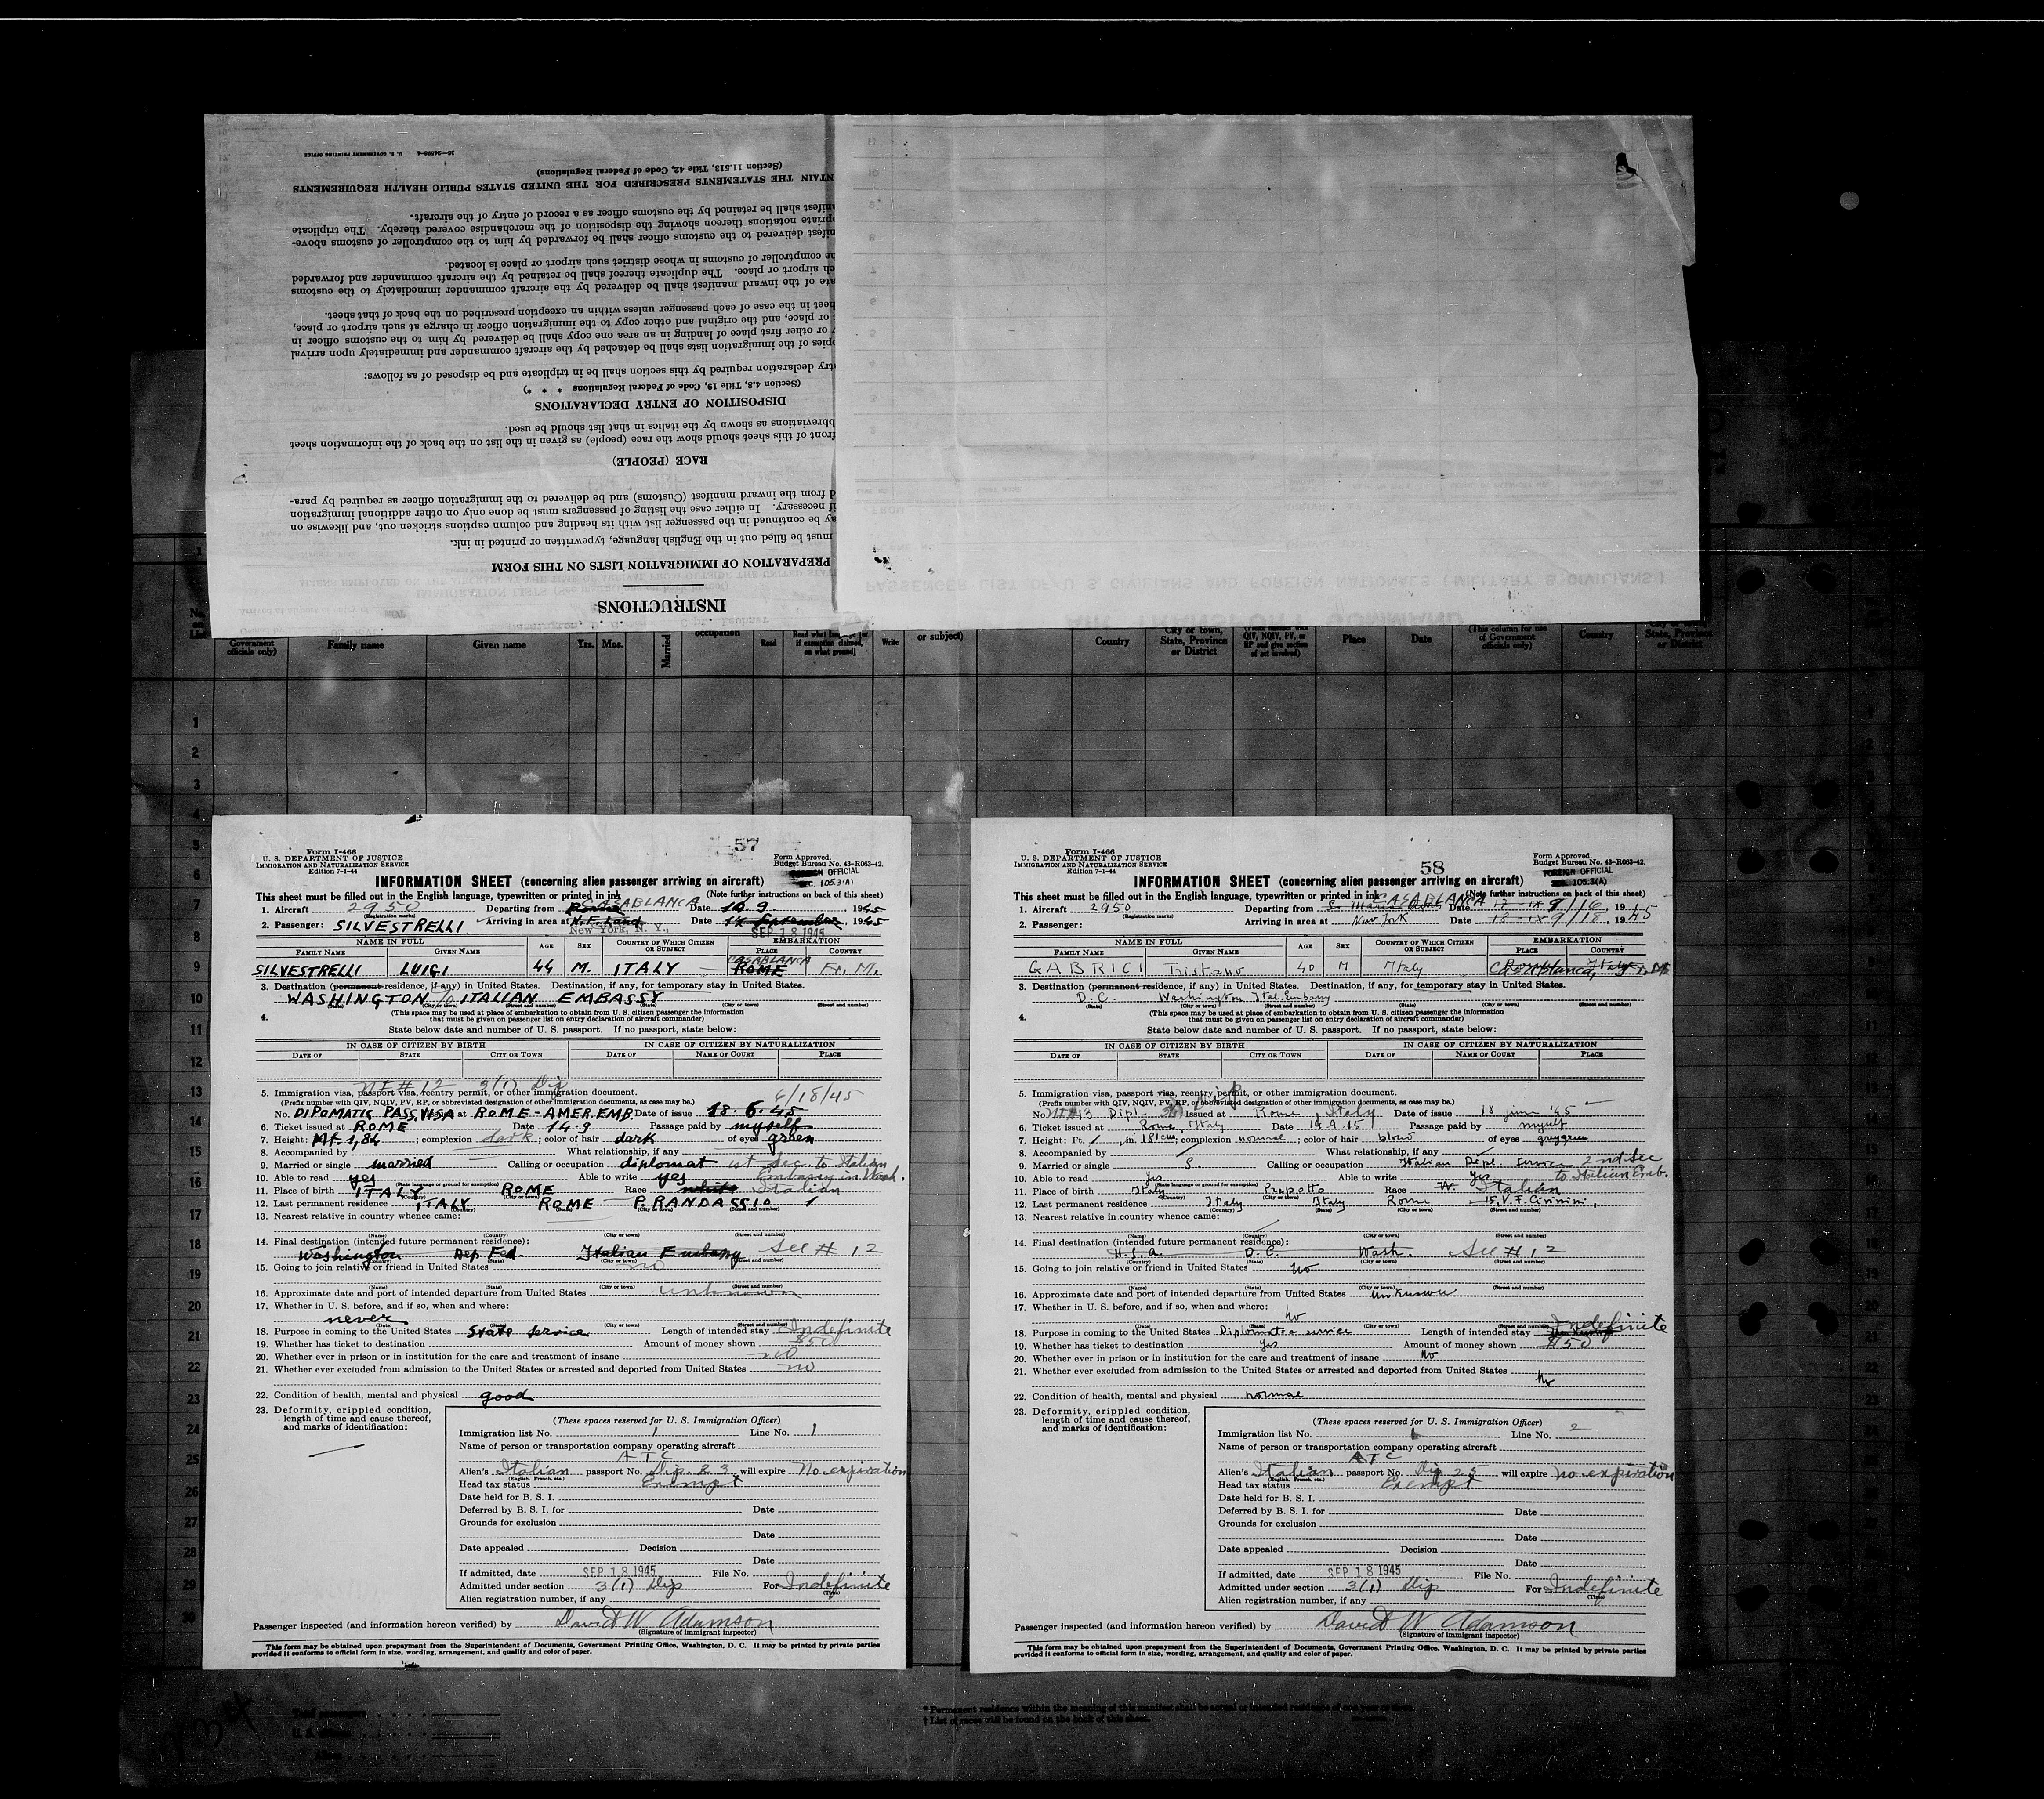 16—24500-4 U. S. GOVERNMENT PRINTING OFFICE
(Section 11.513, Title 42, Code of Federal Regulations)
NTAIN THE STATEMENTS PRESCRIBED FOR THE UNITED STATES PUBLIC HEALTH REQUIREMENTS
nifest shall be retained by the customs officer as a record of entry of the aircraft.
priate notations thereon showing the disposition of the merchandise covered thereby. The triplicate
nifest delivered to the customs officer shall be forwarded by him to the comptroller of customs above-
he comptroller of customs in whose district such airport or place is located.
ch airport or place. The duplicate thereof shall be retained by the aircraft commander and forwarded
ate of the inward manifest shall be delivered by the aircraft commander immediately to the customs
heet in the case of each passenger unless within an exception prescribed on the back of that sheet.
s or place, and the original and other copy to the immigration officer in charge at such airport or place,
y or other first place of landing in an area one copy shall be delivered by him to the customs officer in
opies of the immigration lists shall be detached by the aircraft commander and immediately upon arrival
try declaration required by this section shall be in triplicate and be disposed of as follows:
(Section 4.8, Title 19, Code of Federal Regulations * * *)
DISPOSITION OF ENTRY DECLARATIONS
bbreviations as shown by the italics in that list should be used.
front of this sheet should show the race (people) as given in the list on the back of the information sheet
RACE (PEOPLE)
d from the inward manifest (Customs) and be delivered to the immigration officer as required by para-
if necessary. In either case the listing of passengers must be done only on other additional immigration
ay be continued in the passenger list with its heading and column captions stricken out, and likewise on
must be filled out in the English language, typewritten or printed in ink.
PREPARATION OF IMMIGRATION LISTS ON THIS FORM
INSTRUCTIONS
PASSENGER LIST OF U S CIVILIANS AND FOREIGN NATIONALS (MILITARY & CIVILIANS)
Government officials only) Family name Given name Yrs. Mos. Married occupation Read Read what language [or if exemption claimed, on what ground] Write or subject) Country City or town, State, Province or District QIV, NQIV, PV, or RP and give section of act involved) Place Date (This column for use of Government officials only) Country State, Province or District
57
Form I-466
U. S. DEPARTMENT OF JUSTICE
IMMIGRATION AND NATURALIZATION SERVICE
Edition 7-1-44
Form Approved.
Budget Bureau No. 43-R063-42.
FOREIGN OFFICIAL
SEC. 105.3(A)
INFORMATION SHEET (concerning alien passenger arriving on aircraft)
This sheet must be filled out in the English language, typewritten or printed in ink (Note further instructions on back of this sheet)
1. Aircraft 2950 Departing from CASABLANCA Date 16.9 , 1945
(Registration marks)
2. Passenger: SILVESTRELLI Arriving in area at N.F.Land Date 14 September, 1945
New York, N. Y., SEP 18 1945
NAME IN FULL AGE SEX COUNTRY OF WHICH CITIZEN OR SUBJECT EMBARKATION
FAMILY NAME GIVEN NAME PLACE COUNTRY
SILVESTRELLI LUIGI 44 M. ITALY CASABLANCA ROME Fr. M.
3. Destination (permanent residence, if any) in United States. Destination, if any, for temporary stay in United States.
WASHINGTON c/o ITALIAN EMBASSY
(State) (City or town) (Street and number) (State) (City or town) (Street and number)
4. (This space may be used at place of embarkation to obtain from U. S. citizen passenger the information
that must be given on passenger list on entry declaration of aircraft commander)
State below date and number of U. S. passport. If no passport, state below:
IN CASE OF CITIZEN BY BIRTH IN CASE OF CITIZEN BY NATURALIZATION
DATE OF STATE CITY OR TOWN DATE OF NAME OF COURT PLACE
# 12 3(1) Dip 6/18/45
5. Immigration visa, passport visa, reentry permit, or other immigration document.
(Prefix number with QIV, NQIV, PV, RP, or abbreviated designation of other immigration documents, as case may be.)
No. DIPOMATIC PASS, VISA Issued at ROME-AMER.EMB. Date of issue 18.6.45
6. Ticket issued at ROME Date 14.9 Passage paid by myself
7. Height: Mt. 1,84 ; complexion dark ; color of hair dark of eyes green
8. Accompanied by What relationship, if any
9. Married or single married Calling or occupation diplomat 1st Sec. to Italian
Embassy in Wash.
10. Able to read yes Able to write yes
(State language or ground for exemption)
11. Place of birth ITALY ROME Race white Italian
(Country) (City or town)
12. Last permanent residence ITALY ROME P. RANDASSIO 1
(Country) (State) (City or town) (Street and number)
13. Nearest relative in country whence came:
(Name) (Country) (State) (City or town) (Street and number)
14. Final destination (intended future permanent residence):
Washington Dep. Fed. Italian Embassy See # 12
(Country) (State) (City or town) (Street and number)
15. Going to join relative or friend in United States no
(Name) (State) (City or town) (Street and number)
16. Approximate date and port of intended departure from United States unknown
17. Whether in U. S. before, and if so, when and where:
never
(Date) (State) (City or town) (Street and number)
18. Purpose in coming to the United States State Service Length of intended stay Indefinite
19. Whether has ticket to destination Amount of money shown $50
20. Whether ever in prison or in institution for the care and treatment of insane no
21. Whether ever excluded from admission to the United States or arrested and deported from United States no
22. Condition of health, mental and physical good
23. Deformity, crippled condition,
length of time and cause thereof,
and marks of identification:
(These spaces reserved for U. S. Immigration Officer)
Immigration list No. 1 Line No. 1
Name of person or transportation company operating aircraft
ATC
Alien's Italian passport No. Dip. 23 will expire No expiration
(English, French, etc.)
Head tax status Exempt
Date held for B. S. I.
Deferred by B. S. I. for Date
Grounds for exclusion
Date
Date appealed Decision
Date
If admitted, date SEP 18 1945 File No.
Admitted under section 3(1) Dip For Indefinite
(Time)
Alien registration number, if any
Passenger inspected (and information hereon verified) by David W Adamson
(Signature of immigrant inspector)
This form may be obtained upon prepayment from the Superintendent of Documents, Government Printing Office, Washington, D. C. It may be printed by private parties
provided it conforms to official form in size, wording, arrangement, and quality and color of paper.
58
Form I-466
U. S. DEPARTMENT OF JUSTICE
IMMIGRATION AND NATURALIZATION SERVICE
Edition 7-1-44
Form Approved.
Budget Bureau No. 43-R063-42.
FOREIGN OFFICIAL
SEC. 105.3(A)
INFORMATION SHEET (concerning alien passenger arriving on aircraft)
This sheet must be filled out in the English language, typewritten or printed in ink (Note further instructions on back of this sheet)
1. Aircraft 2950 Departing from CASABLANCA Date 17-IX 9/16 19
(Registration marks)
2. Passenger: Arriving in area at New York Date 18-IX 9/18 1945
NAME IN FULL AGE SEX COUNTRY OF WHICH CITIZEN OR SUBJECT EMBARKATION
FAMILY NAME GIVEN NAME PLACE COUNTRY
GABRICI Tristano 40 M Italy Casablanca, Fr. M
3. Destination (permanent residence, if any) in United States. Destination, if any, for temporary stay in United States.
D.C. Washington Ital. Embassy
(State) (City or town) (Street and number) (State) (City or town) (Street and number)
4. (This space may be used at place of embarkation to obtain from U. S. citizen passenger the information
that must be given on passenger list on entry declaration of aircraft commander)
State below date and number of U. S. passport. If no passport, state below:
IN CASE OF CITIZEN BY BIRTH IN CASE OF CITIZEN BY NATURALIZATION
DATE OF STATE CITY OR TOWN DATE OF NAME OF COURT PLACE
5. Immigration visa, passport visa, reentry permit, or other immigration document.
(Prefix number with QIV, NQIV, PV, RP, or abbreviated designation of other immigration documents, as case may be.)
No. #13 Dipl. 3(1) Issued at Rome, Italy Date of issue 18 june '45
6. Ticket issued at Rome, Italy Date 14.9.45 Passage paid by myself
7. Height: Ft. / , in 181 cm; complexion normal ; color of hair blond of eyes greygreen
8. Accompanied by What relationship, if any
9. Married or single S. Calling or occupation Italian Dipl. service 2nd Sec
to Italian Emb.
10. Able to read yes Able to write yes
(State language or ground for exemption)
11. Place of birth Italy Prepotto Race Italian
(Country) (City or town)
12. Last permanent residence Italy Italy Rome 15, V. F. Civinini,
(Country) (State) (City or town) (Street and number)
13. Nearest relative in country whence came:
(Name) (Country) (State) (City or town) (Street and number)
14. Final destination (intended future permanent residence):
U.S.a. D.C. Wash. See # 12
(Country) (State) (City or town) (Street and number)
15. Going to join relative or friend in United States no
(Name) (State) (City or town) (Street and number)
16. Approximate date and port of intended departure from United States unknown
17. Whether in U. S. before, and if so, when and where:
no
(Date) (State) (City or town) (Street and number)
18. Purpose in coming to the United States Diplomatic service Length of intended stay Indefinite
19. Whether has ticket to destination yes Amount of money shown $50
20. Whether ever in prison or in institution for the care and treatment of insane no
21. Whether ever excluded from admission to the United States or arrested and deported from United States
no
22. Condition of health, mental and physical normal
23. Deformity, crippled condition,
length of time and cause thereof,
and marks of identification:
(These spaces reserved for U. S. Immigration Officer)
Immigration list No. 1 Line No. 2
Name of person or transportation company operating aircraft
ATC
Alien's Italian passport No. Dip 25 will expire no expiration
(English, French, etc.)
Head tax status Exempt
Date held for B. S. I.
Deferred by B. S. I. for Date
Grounds for exclusion
Date
Date appealed Decision
Date
If admitted, date SEP 18 1945 File No.
Admitted under section 3(1) Dip For Indefinite
(Time)
Alien registration number, if any
Passenger inspected (and information hereon verified) by David W Adamson
(Signature of immigrant inspector)
This form may be obtained upon prepayment from the Superintendent of Documents, Government Printing Office, Washington, D. C. It may be printed by private parties
provided it conforms to official form in size, wording, arrangement, and quality and color of paper.
* Permanent residence within the meaning of this manifest shall be actual or intended residence of one year or more.
† List of races will be found on the back of this sheet.
Total passengers
U. S. citizens
Aliens